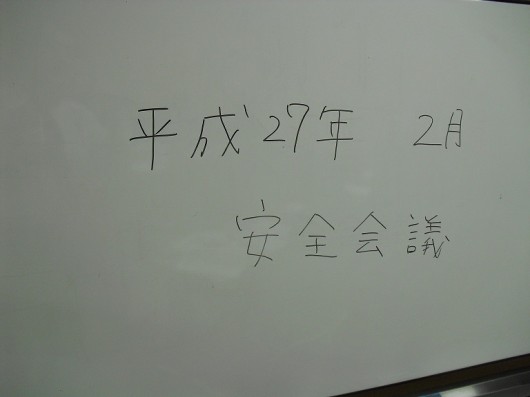 平成27年 2月
安全会議